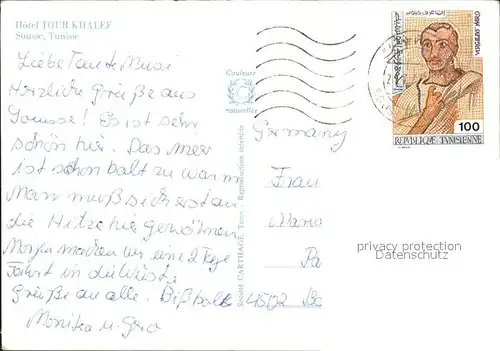 Hôtel TOUR KHALEF
Sousse, Tunisie
Liebe Tante Musi
Herzliche Grüße aus
Sousse! Es ist sehr
schön hier. Das Meer
ist schon balt zu warm
Man muß sich erst an
die Hitze hie gewöhnen
Morgen machen wir eine 2 Tage
Fahrt in die Wüste
Grüße an alle. Bißbald
Monika u. Gero
Couleurs
naturelles
Société CARTHAGE, Tunis - Reproduction interdite
Germany
Frau
4502
REPUBLIQUE TUNISIENNE
100
privacy protection
Datenschutz